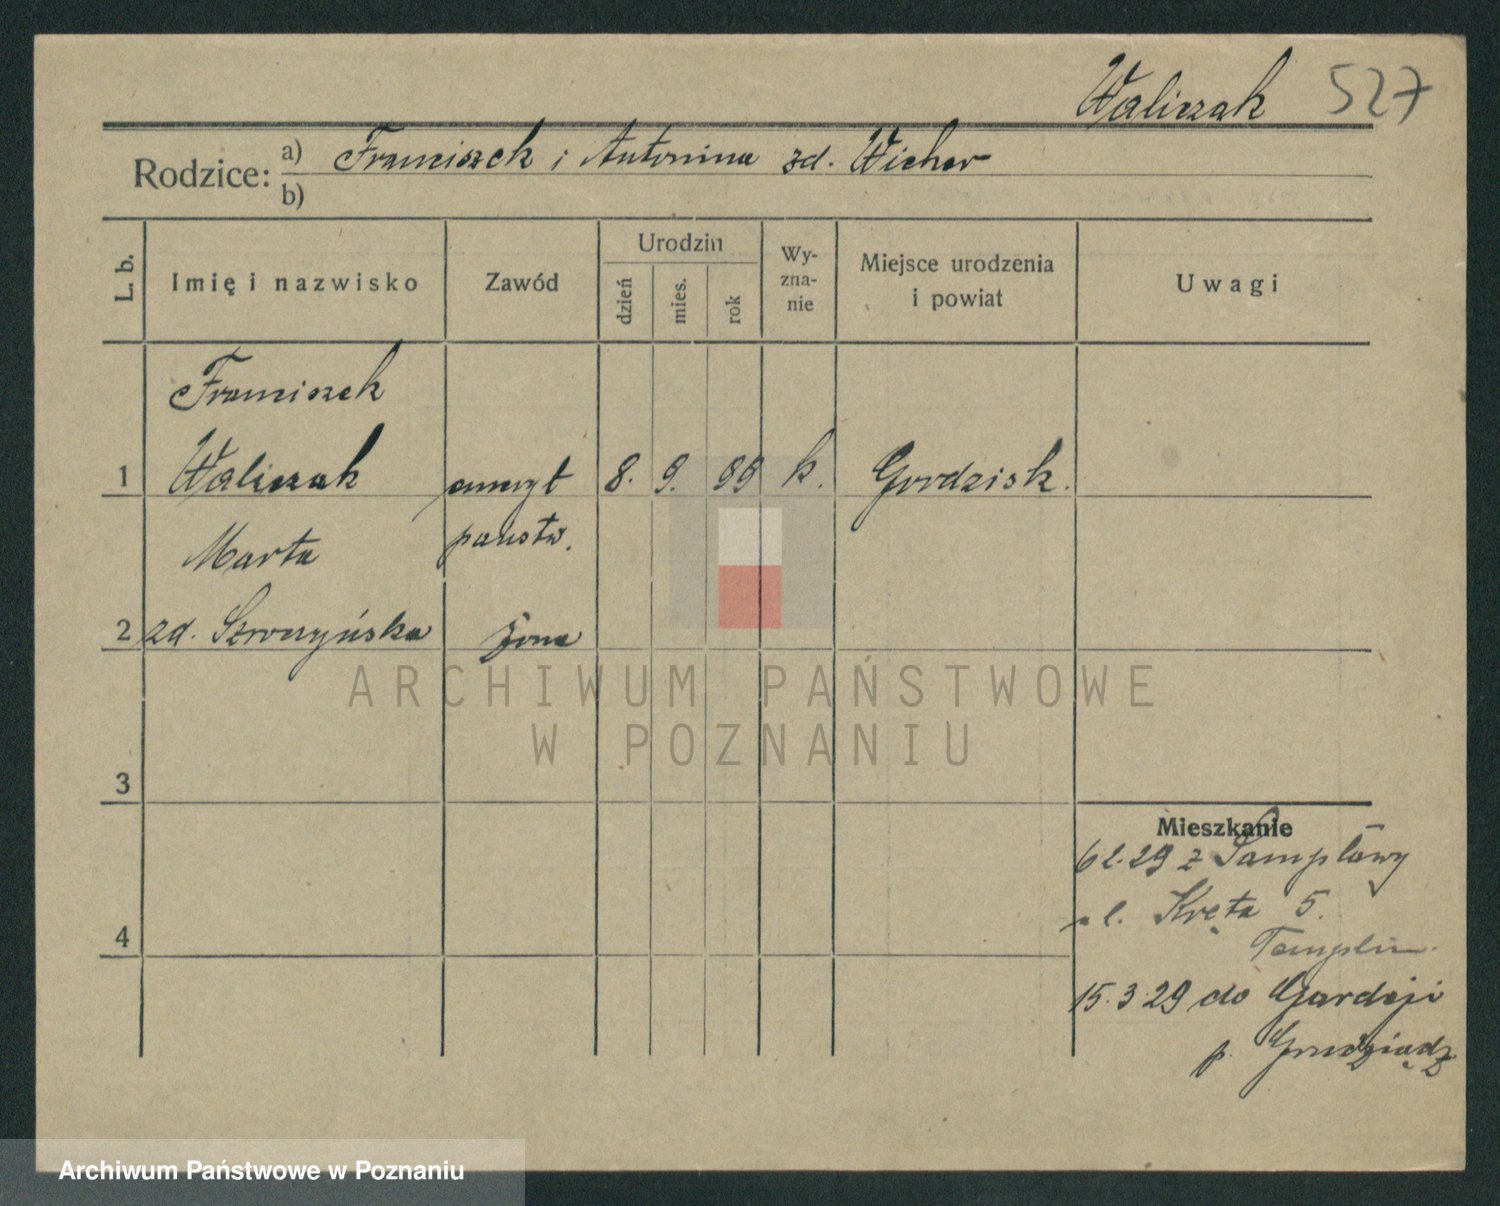 Waliczak 527
Rodzice: a) Franciszek i Antonina zd. Wicher
b)
L. b. Imię i nazwisko Zawód Urodzin dzień mies. rok Wy-zna-nie Miejsce urodzenia i powiat Uwagi
Franciszek
1 Waliczak emeryt 8. 9. 99 k. Grodzisk.
Marta państw.
2 zd. żona
3
Mieszkanie
29 z
ul. Kręta 5.
4
Templin.
15.3.29 do Gardeji
p. Grudziądz
ARCHIWUM PAŃSTWOWE
W POZNANIU
Archiwum Państwowe w Poznaniu